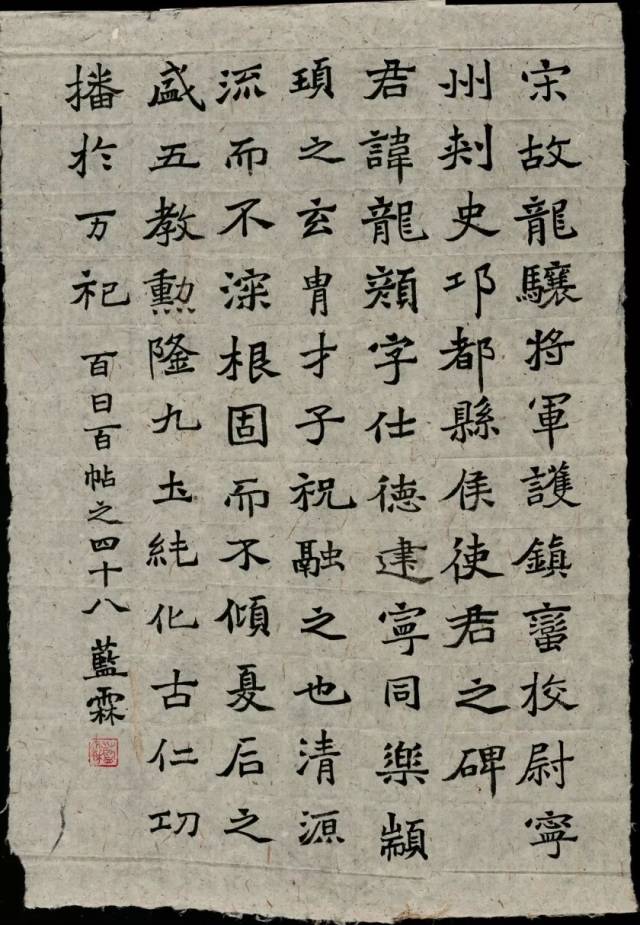 宋故龍驤将軍護鎮蛮校尉寧
州刾史邛都縣侯使君之碑
君諱龍顔字仕徳建寧同楽顓
頊之玄胄才子祝融之也清源
流而不滦根固而不傾夏后之
盛五教勲隆九土純化古仁功
播扵万祀
百日百帖之四十八 藍霖